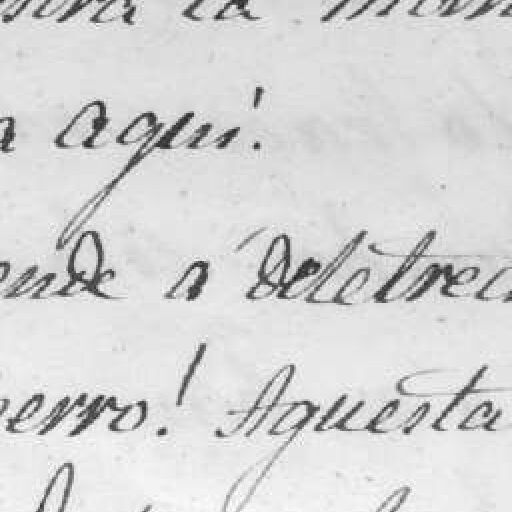 la
a aqui!
ende á deletrea
perro! Aquesta